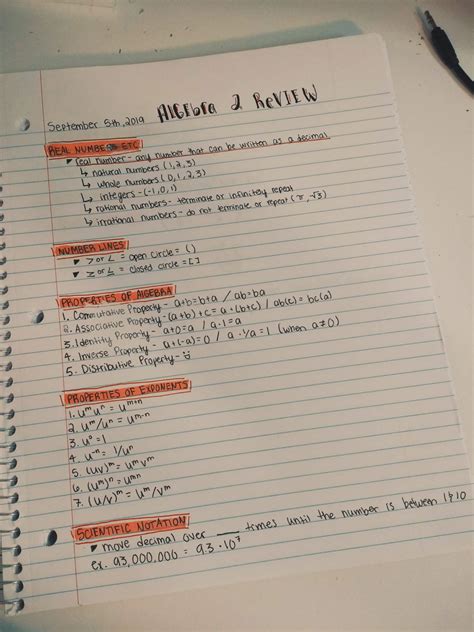 September 5th, 2019
Algebra 2 Review
REAL NUMBERS ETC
▾ real number - any number that can be written as a decimal
↳ natural numbers (1,2,3)
↳ whole numbers (0,1,2,3)
↳ integers - (-1,0,1)
↳ rational numbers - terminate or infinitely repeat
↳ irrational numbers - do not terminate or repeat (π,√3)
NUMBER LINES
▾ > or < = open circle = ( )
▾ ≥ or ≤ = closed circle = [ ]
PROPERTIES OF ALGEBRA
1. Commutative Property - a+b=b+a / ab=ba
2. Associative Property - (a+b)+c = a+(b+c) / ab(c) = bc(a)
3. Identity Property - a+0=a / a·1=a
4. Inverse Property - a+(-a)=0 / a·1/a=1 (when a≠0)
5. Distributive Property - ☹
PROPERTIES OF EXPONENTS
1. uᵐuⁿ = uᵐ⁺ⁿ
2. uᵐ/uⁿ = uᵐ⁻ⁿ
3. u⁰=1
4. u⁻ⁿ = 1/uⁿ
5. (uv)ᵐ = uᵐvᵐ
6. (uᵐ)ⁿ = uᵐⁿ
7. (u/v)ᵐ = uᵐ/vᵐ
SCIENTIFIC NOTATION
▾ move decimal over ___ times until the number is between 1&10
ex. 93,000,000 = 9.3 · 10⁷